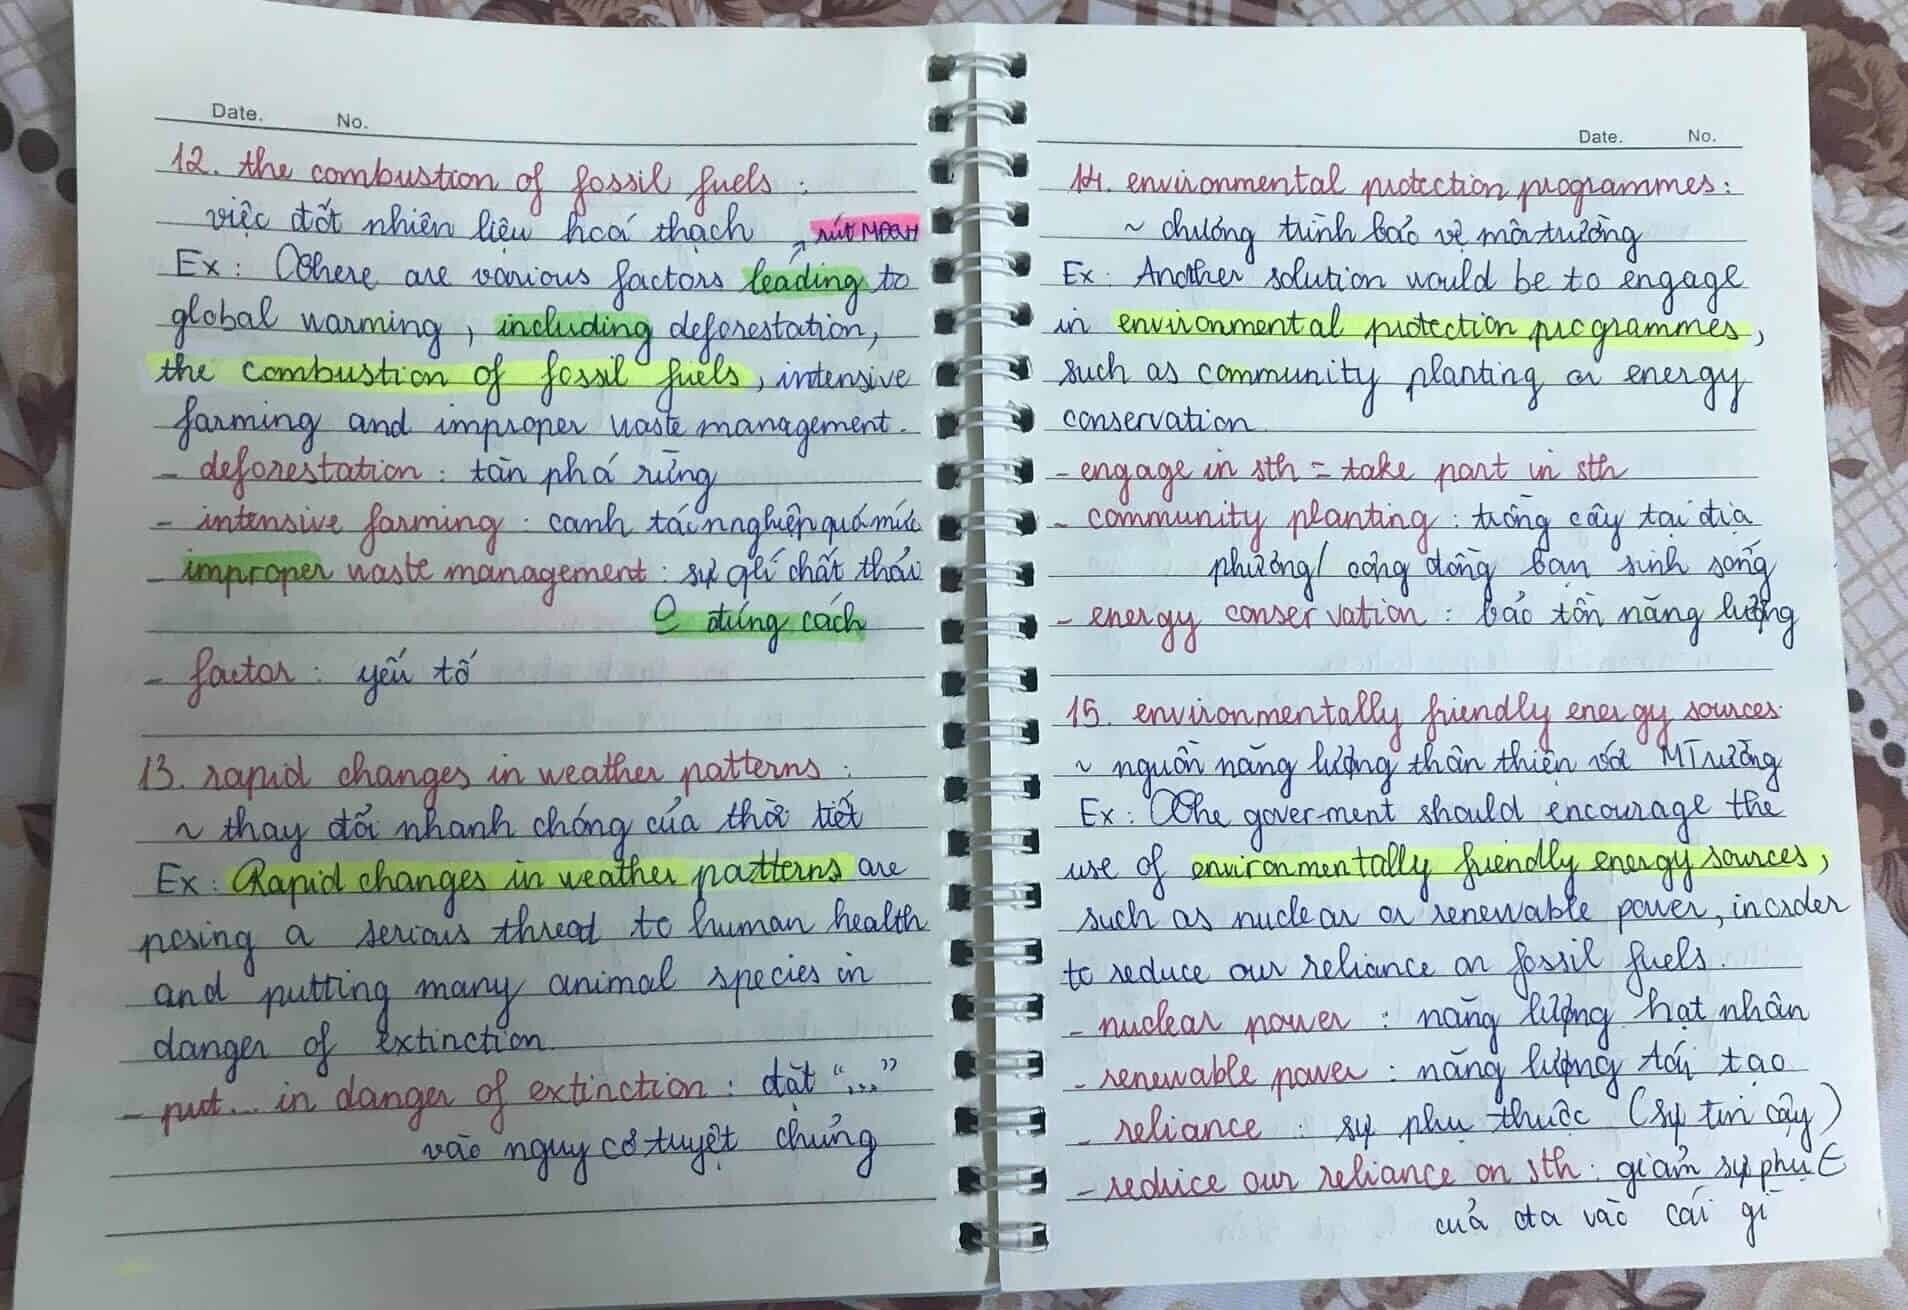 Date. No.
12. the combustion of fossil fuels :
việc đốt nhiên liệu hoá thạch rút MĐQH
Ex : There are various factors leading to
global warming, including deforestation,
the combustion of fossil fuels, intensive
farming and improper waste management.
- deforestation : tàn phá rừng
- intensive farming : canh tác nnghiệp quá mức
- improper waste management : sự qlí chất thải
⊖ đúng cách
- factor : yếu tố
13. rapid changes in weather patterns :
~ thay đổi nhanh chóng của thời tiết
Ex : Rapid changes in weather patterns are
posing a serious thread to human health
and putting many animal species in
danger of extinction
- put ... in danger of extinction : đặt "..."
vào nguy cơ tuyệt chủng
Date. No.
14. environmental protection programmes :
~ chương trình bảo vệ môi trường
Ex : Another solution would be to engage
in environmental protection programmes,
such as community planting or energy
conservation
- engage in sth = take part in sth
- community planting : trồng cây tại địa
phương/ cộng đồng bạn sinh sống
- energy conservation : bảo tồn năng lượng
15. environmentally friendly energy sources.
~ nguồn năng lượng thân thiện với MTrường
Ex : The goverment should encourage the
use of environmentally friendly energy sources,
such as nuclear or renewable power, in order
to reduce our reliance on fossil fuels.
- nuclear power : năng lượng hạt nhân
- renewable power : năng lượng tái tạo
- reliance : sự phụ thuộc (sự tin cậy)
- reduce our reliance on sth : giảm sự phụ t
của ta vào cái gì